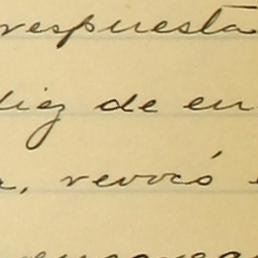 respuesta
diez de en
, revocó